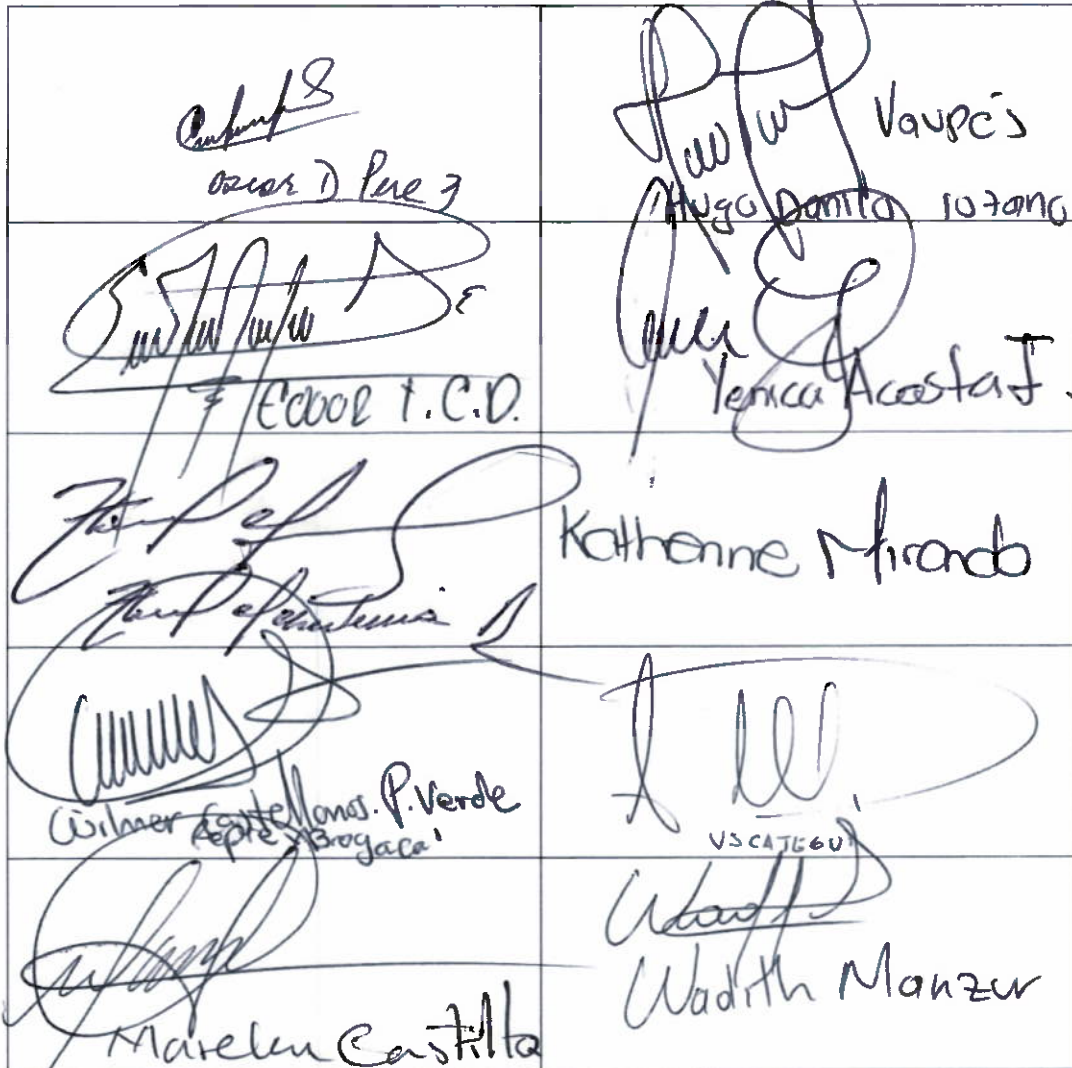 Oscar D Perez
Vaupés
Hugo Danilo lozano
T.C.D.
Yenica Acosta I.
Katherine Miranda
Wilmer Castellanos. P. Verde
Repre x Boyaca
USCATEGUI
Marelen Castillo
Wadith Manzur